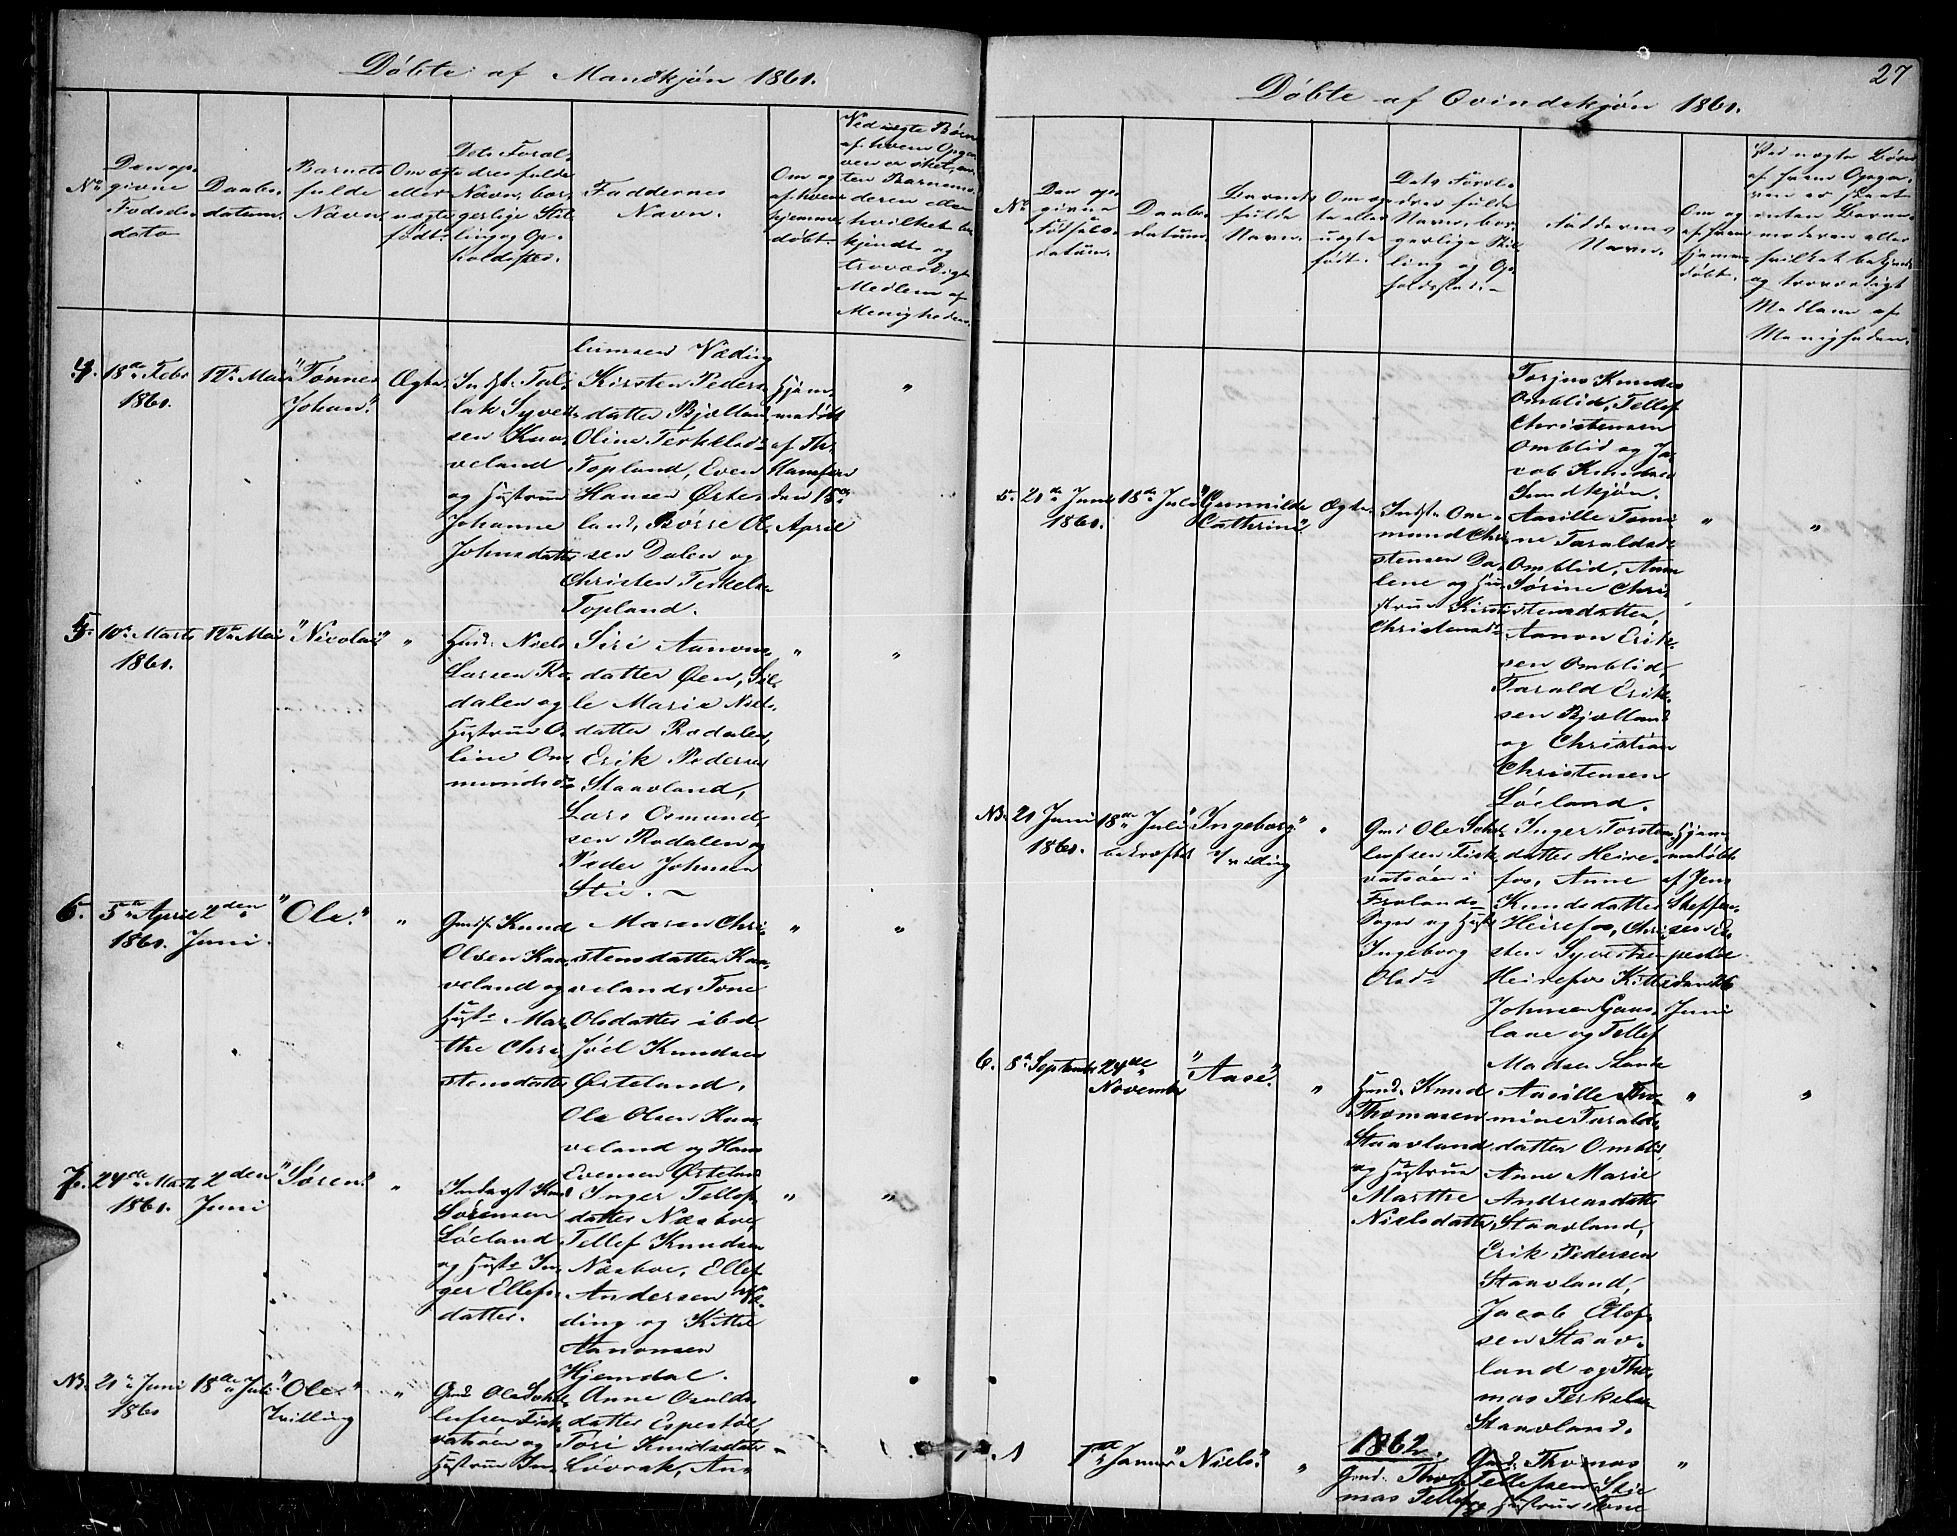 Døbte af Mandkjøn 1861.
No
Den op-
givne
Fødsels-
dato
Daabs-
datum.
Barnets
fulde
Navn.
Om æg-
te eller
uægte
født.
Dets Foræl-
dres fulde
Navn, bor-
gerlige Stil-
ling og Op-
holdssted.
Faddernes
Navn.
Om og
af hvem
hjemme-
døbt.
Ved uægte Børn
af hvem Opga-
ven er skeet, en-
ten Barnemo-
deren eller
hvilket be-
kjendt og
troværdigt
Medlem af
Menigheden.
4.
18de Febr
1861.
12te Mai
"Tønnes
Johan."
Ægte
Indst. Tal-
lak Syvert-
sen Kaa-
veland
og Hustru
Johanne
Johnsdatter
lumsen Væding
Kirsten Peders-
datter Bjælland
Oline Terkelsd-
Topland, Even
Hansen Øste-
land, Børre Ol-
sen Dalen og
Christen Terkels-
Topland.
Hjem-
medøbt
af Th.
Hansen
den 15de
April
"
5.
10de Marts
1861.
12te Mai
"Nicolai"
"
Niels
Larsen Ro-
dalen og
Hustru O-
line Om-
mundsd-
Siri Aanons-
datter Øen, Sil-
le Marie Niels-
datter Rodalen,
Erik Pedersen
Staavland,
Lars Osmund-
sen Rodalen og
Peder Johnsen
Stie.
"
"
6.
5te April
1861.
2den
Juni.
"Ole."
"
Knud
Olsen Kaa-
veland og
Hust. Mar-
the Chri-
stensdatter
Maren Chri-
stensdatter Kaa-
veland, Tone
Olsdatter ibd
Joel Knudsen
Østeland,
Ole Olsen Kaa-
veland og Hans
Evensen Østeland
"
"
7.
24de Marts
1861.
2den
Juni
"Søren."
"
Knud
Sørensen
Løeland
og Hust. In-
ger Ellefs-
datter.
Inger Tellef-
datter Næsboe,
Tellef Knudsen
Næsboe, Ellef
Andersen Væ-
ding og Kittil
Aanonsen
Hjemdal.
"
"
No 8.
21de Juni
1861
18de Juli
"Ole"
Tvilling
"
Ole Sohk-
lufsen Fisk-
vatsøen og
Hustru In-
Anne Osulds-
datter Espestøl
Tori Knudsdatter
Løvrak, An-
Døbte af Qvindekjøn 1861.
27
No
Den op-
givne
Fødsels-
datum.
Daabs-
datum.
Barnets
fulde
Navn.
Om æg-
te eller
uægte
født.
Dets Foræl-
dres fulde
Navn, bor-
gerlige Stil-
ling og Op-
holdssted.
Faddernes
Navn.
Om og
af hvem
hjemme-
døbt.
Ved uægte Børn
af hvem Opga-
ven er skeet
enten Barne-
moderen eller
hvilket bekjendt
og troværdigt
Medlem af
Menigheden.
5.
21de Juni
1861.
18de Juli
"Gunnilde
Cathrine"
Ægte
Indst. Om-
mund Chri-
stensen Da-
lene og Hu-
strue Kirsti
Christensd-
Torjus Knudsen
Omblid, Tellef
Christensen
Omblid og Ja-
cob Knudsen
Sundkjøn.
Aasille Tomi-
ne Taraldsd-
Omblid, Anne
Sørine Chri-
stensdatter,
Aanon Erik-
sen Omblid,
Tarald Erik-
sen Bjælland
og Christian
Christensen
Løeland.
"
"
No 8.
21 Juni
1861.
18de Juli
bekræftet
"Ingeborg"
Tvilling
"
Ole Sohk-
lufsen Fisk-
vatsøen i
Frolands-
Sogn og Hust
Ingeborg
Olsd-
Inger Torsten-
datter Heire-
fos, Anne
Knudsdatter
Heirefos, Chri-
sten Syvertsen
Heirefos Kittel
Johnsen Gaas-
laae og Tellef
Madsen
Hjem-
medøbt
af Jens
Steffen-
sen Es-
pestøl
den 26
Juni
6.
8de September
24de
November
"Aase."
"
Knud
Thomasen
Staavland
og Hustrue
Marthe
Nielsdatter
Aasille Tho-
mine Taralds-
datter Omblid,
Anne Marie
Andreasdatter
Staavland,
Erik Pedersen
Staavland,
Jacob Olof-
sen Staav-
land og Tho-
mas Terkels-
Staavland.
"
"
1862.
1
1ste Januar
"Niels."
"
Tho-
mas Tellefs-
Thomas
Tellefsen Stie
og Hustrue Tone
"